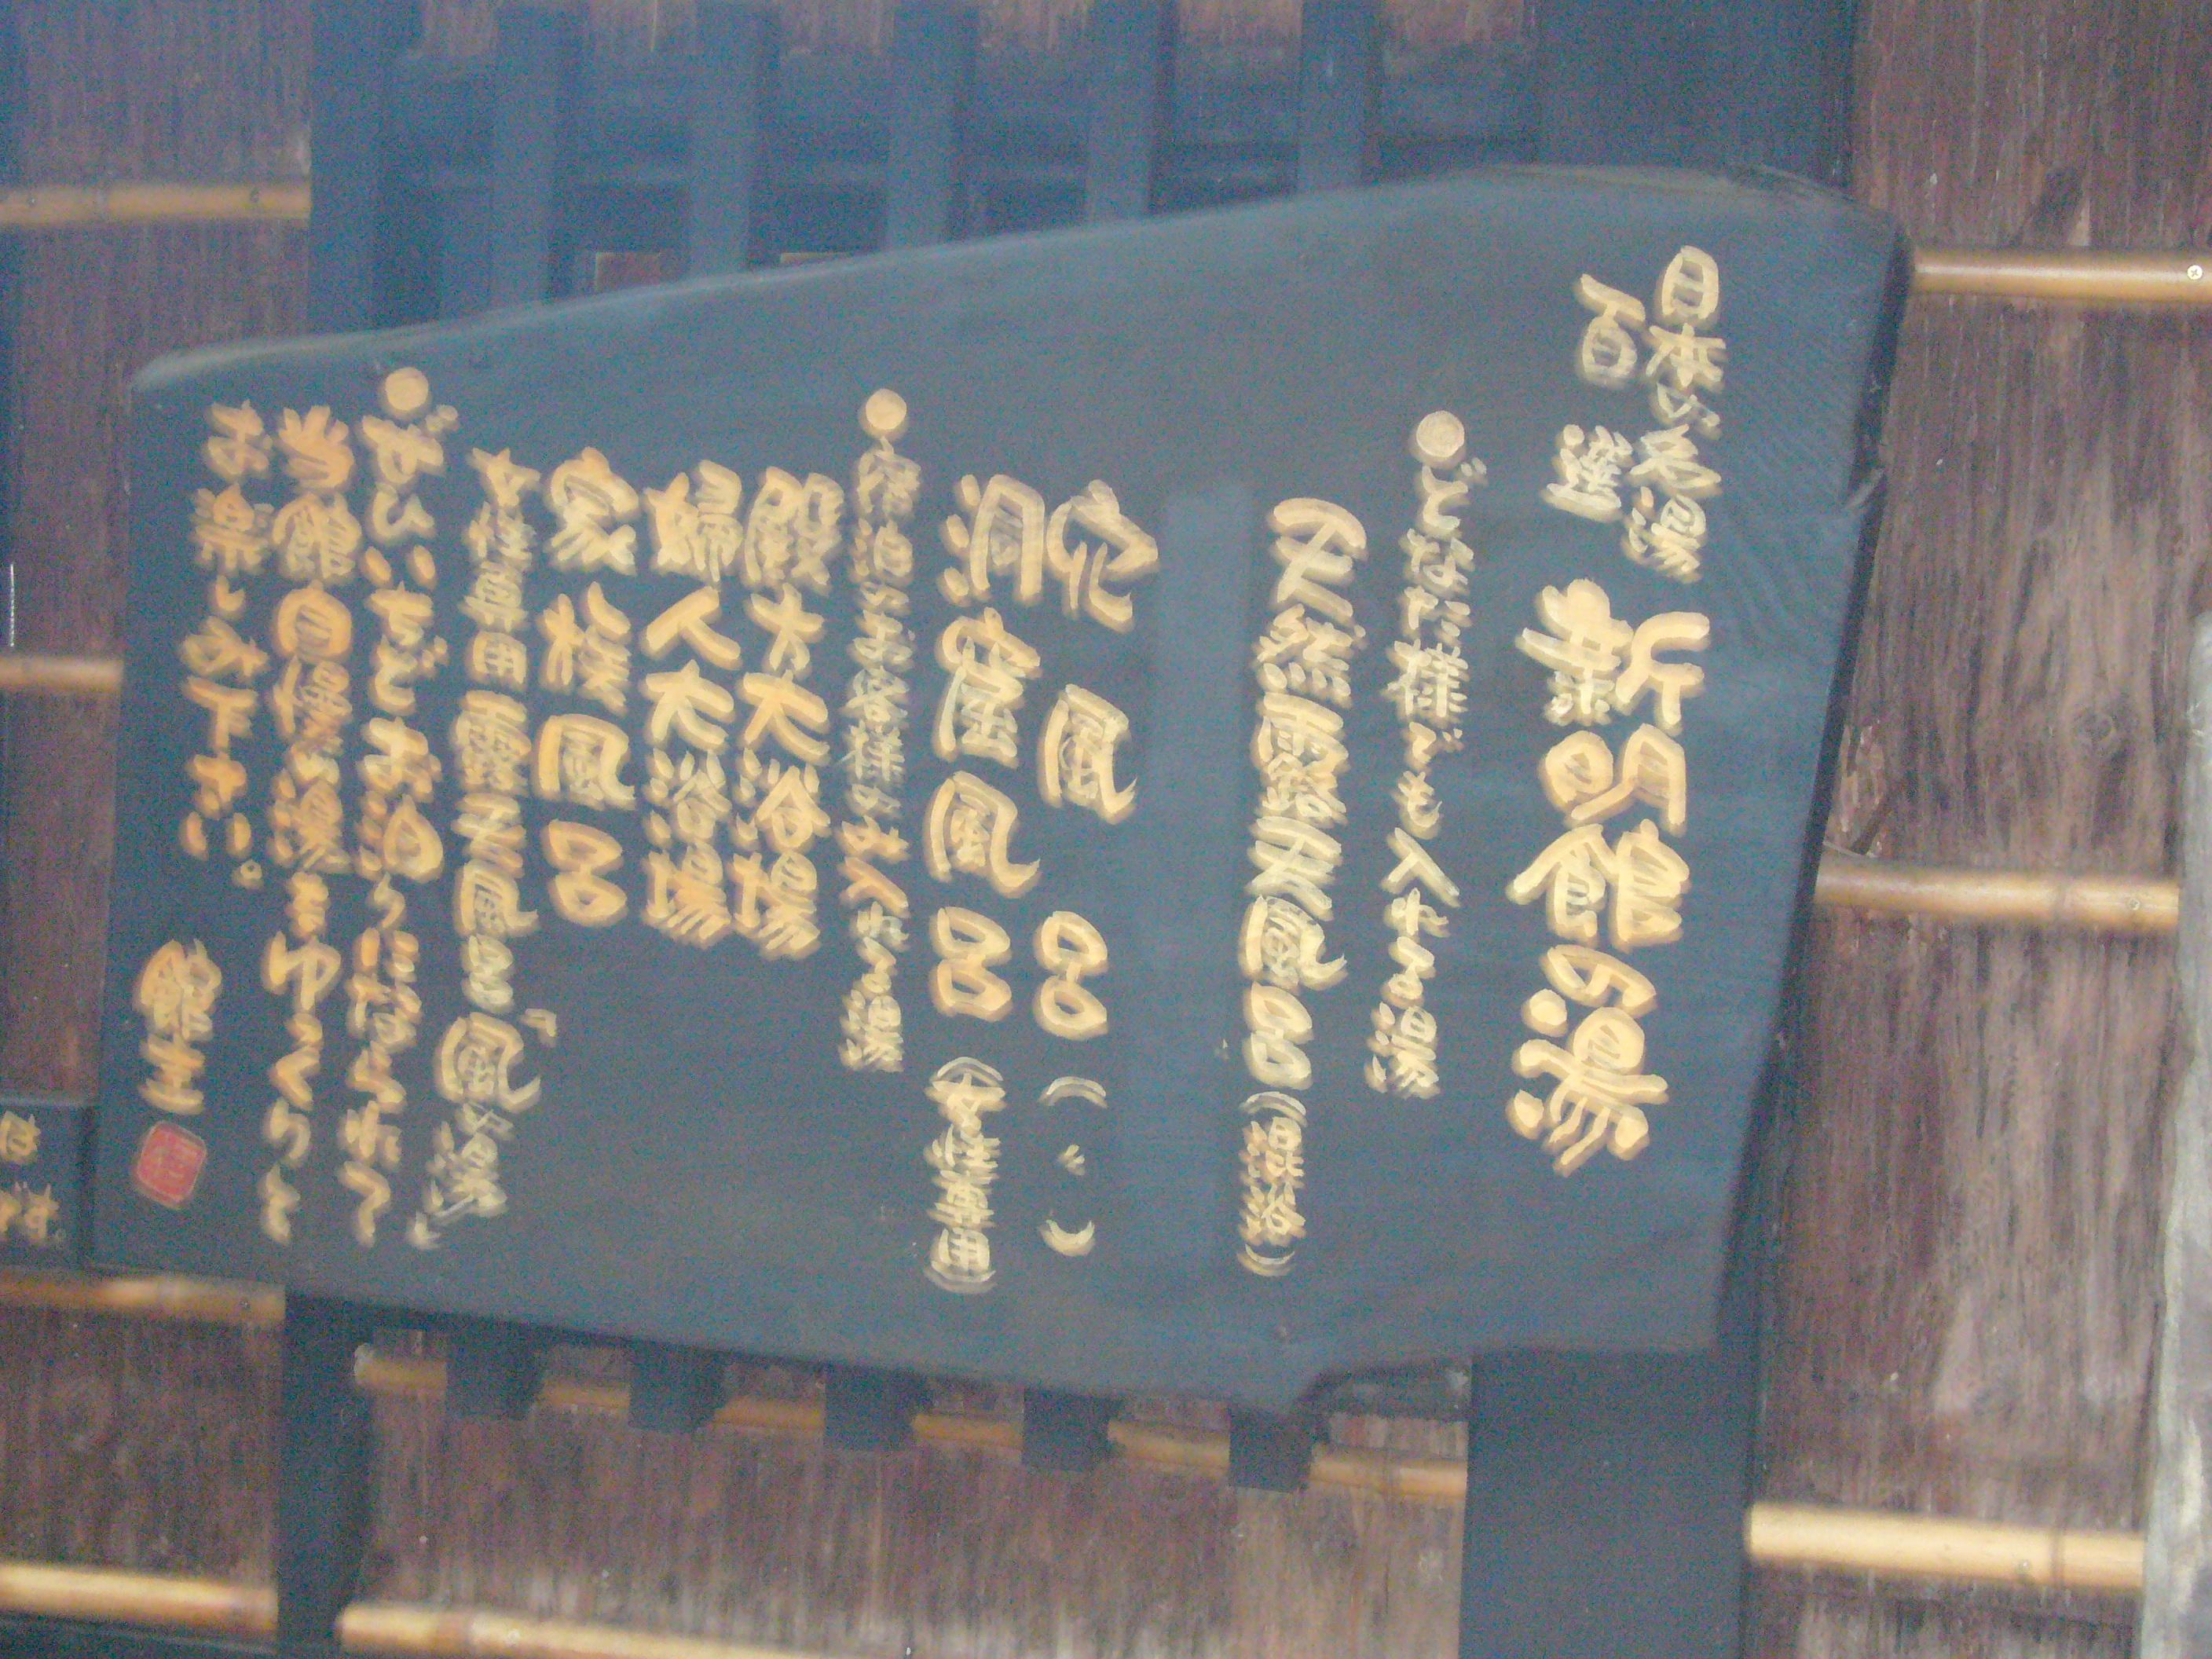 日本の名湯
百選
新明館の湯
●どなた様でも入れる湯
天然露天風呂(混浴)
穴風呂(〃)
洞窟風呂(女性専用)
●宿泊のお客様のみ入れる湯
殿方大浴場
婦人大浴場
家族風呂
女性専用露天風呂「風の湯」
●ぜひいちどお泊りになられて
当館自慢の湯をゆっくりと
お楽しみ下さい。
館主